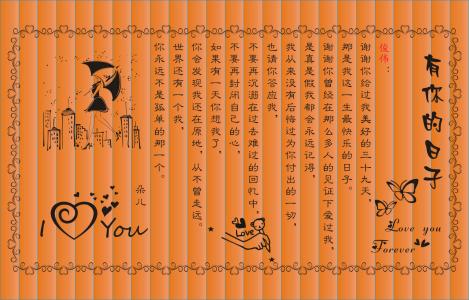 有你的日子
俊伟：
谢谢你给过我美好的三十九天，
那是我这一生最快乐的日子。
谢谢你曾经在那么多人的见证下爱过我，
是真是假我都会永远记得，
我从来没有后悔过为你付出的一切，
也请你答应我，
不要再沉溺在过去难过的回忆中，
不要再封闭自己的心，
如果有一天你想我了，
你会发现我还在原地，从不曾走远。
世界还有一个我，
你永远不是孤单的那一个。
朵儿
I You
Love
Love you
Forever